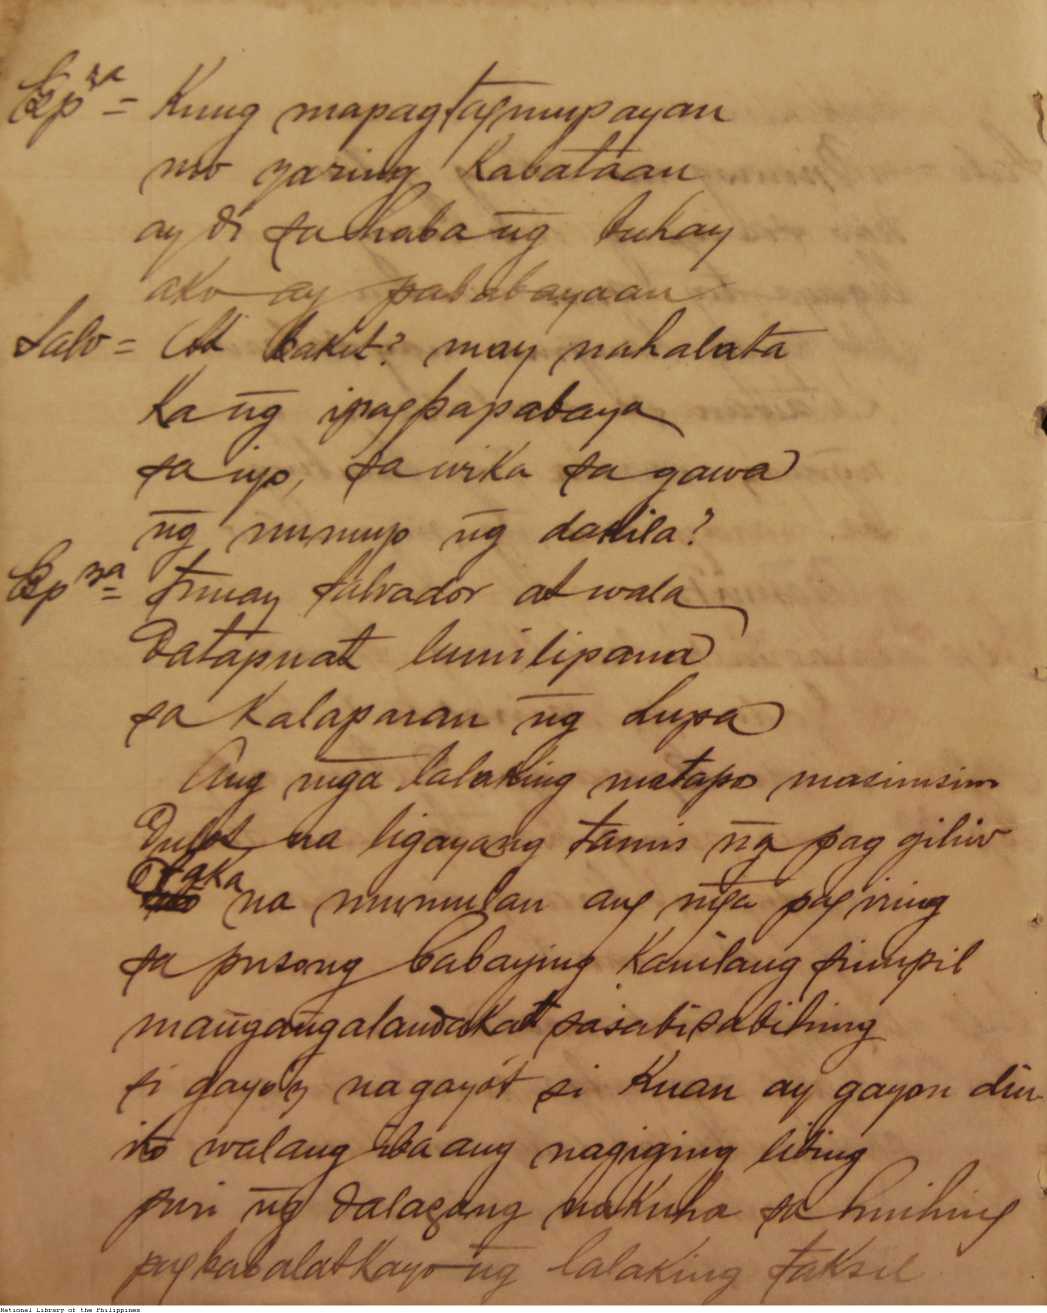 Epza = Kung mapagtagumpayan
mo yaring Kabataan
ay di sa haba n̄g buhay
ako ay pababayaan
Salv = At bakit? may nahalata
Ka n̄g ipagpapabaya
sa iyo, sa wika sa gawa
n̄g numuyo n̄g dakila?
Epza = Irmay Salvador at wala
Datapuat lumilipana
sa Kalaparan n̄g lupa
Ang mga lalaking matapo masimsim
Dulot na ligayang tamis n̄g pag giliw
Saka na mumulan ang mga pag iring
sa pusong babaying Kanilang sinupil
man̄gan̄galandakat sasabisabihing
si gayo'y nagayót si Kuan ay gayon din
ito walang iba ang nagiging libing
puri n̄g dalagang nakuha sa huihing
pagbabalatkayo n̄g lalaking taksil
National Library of the Philippines